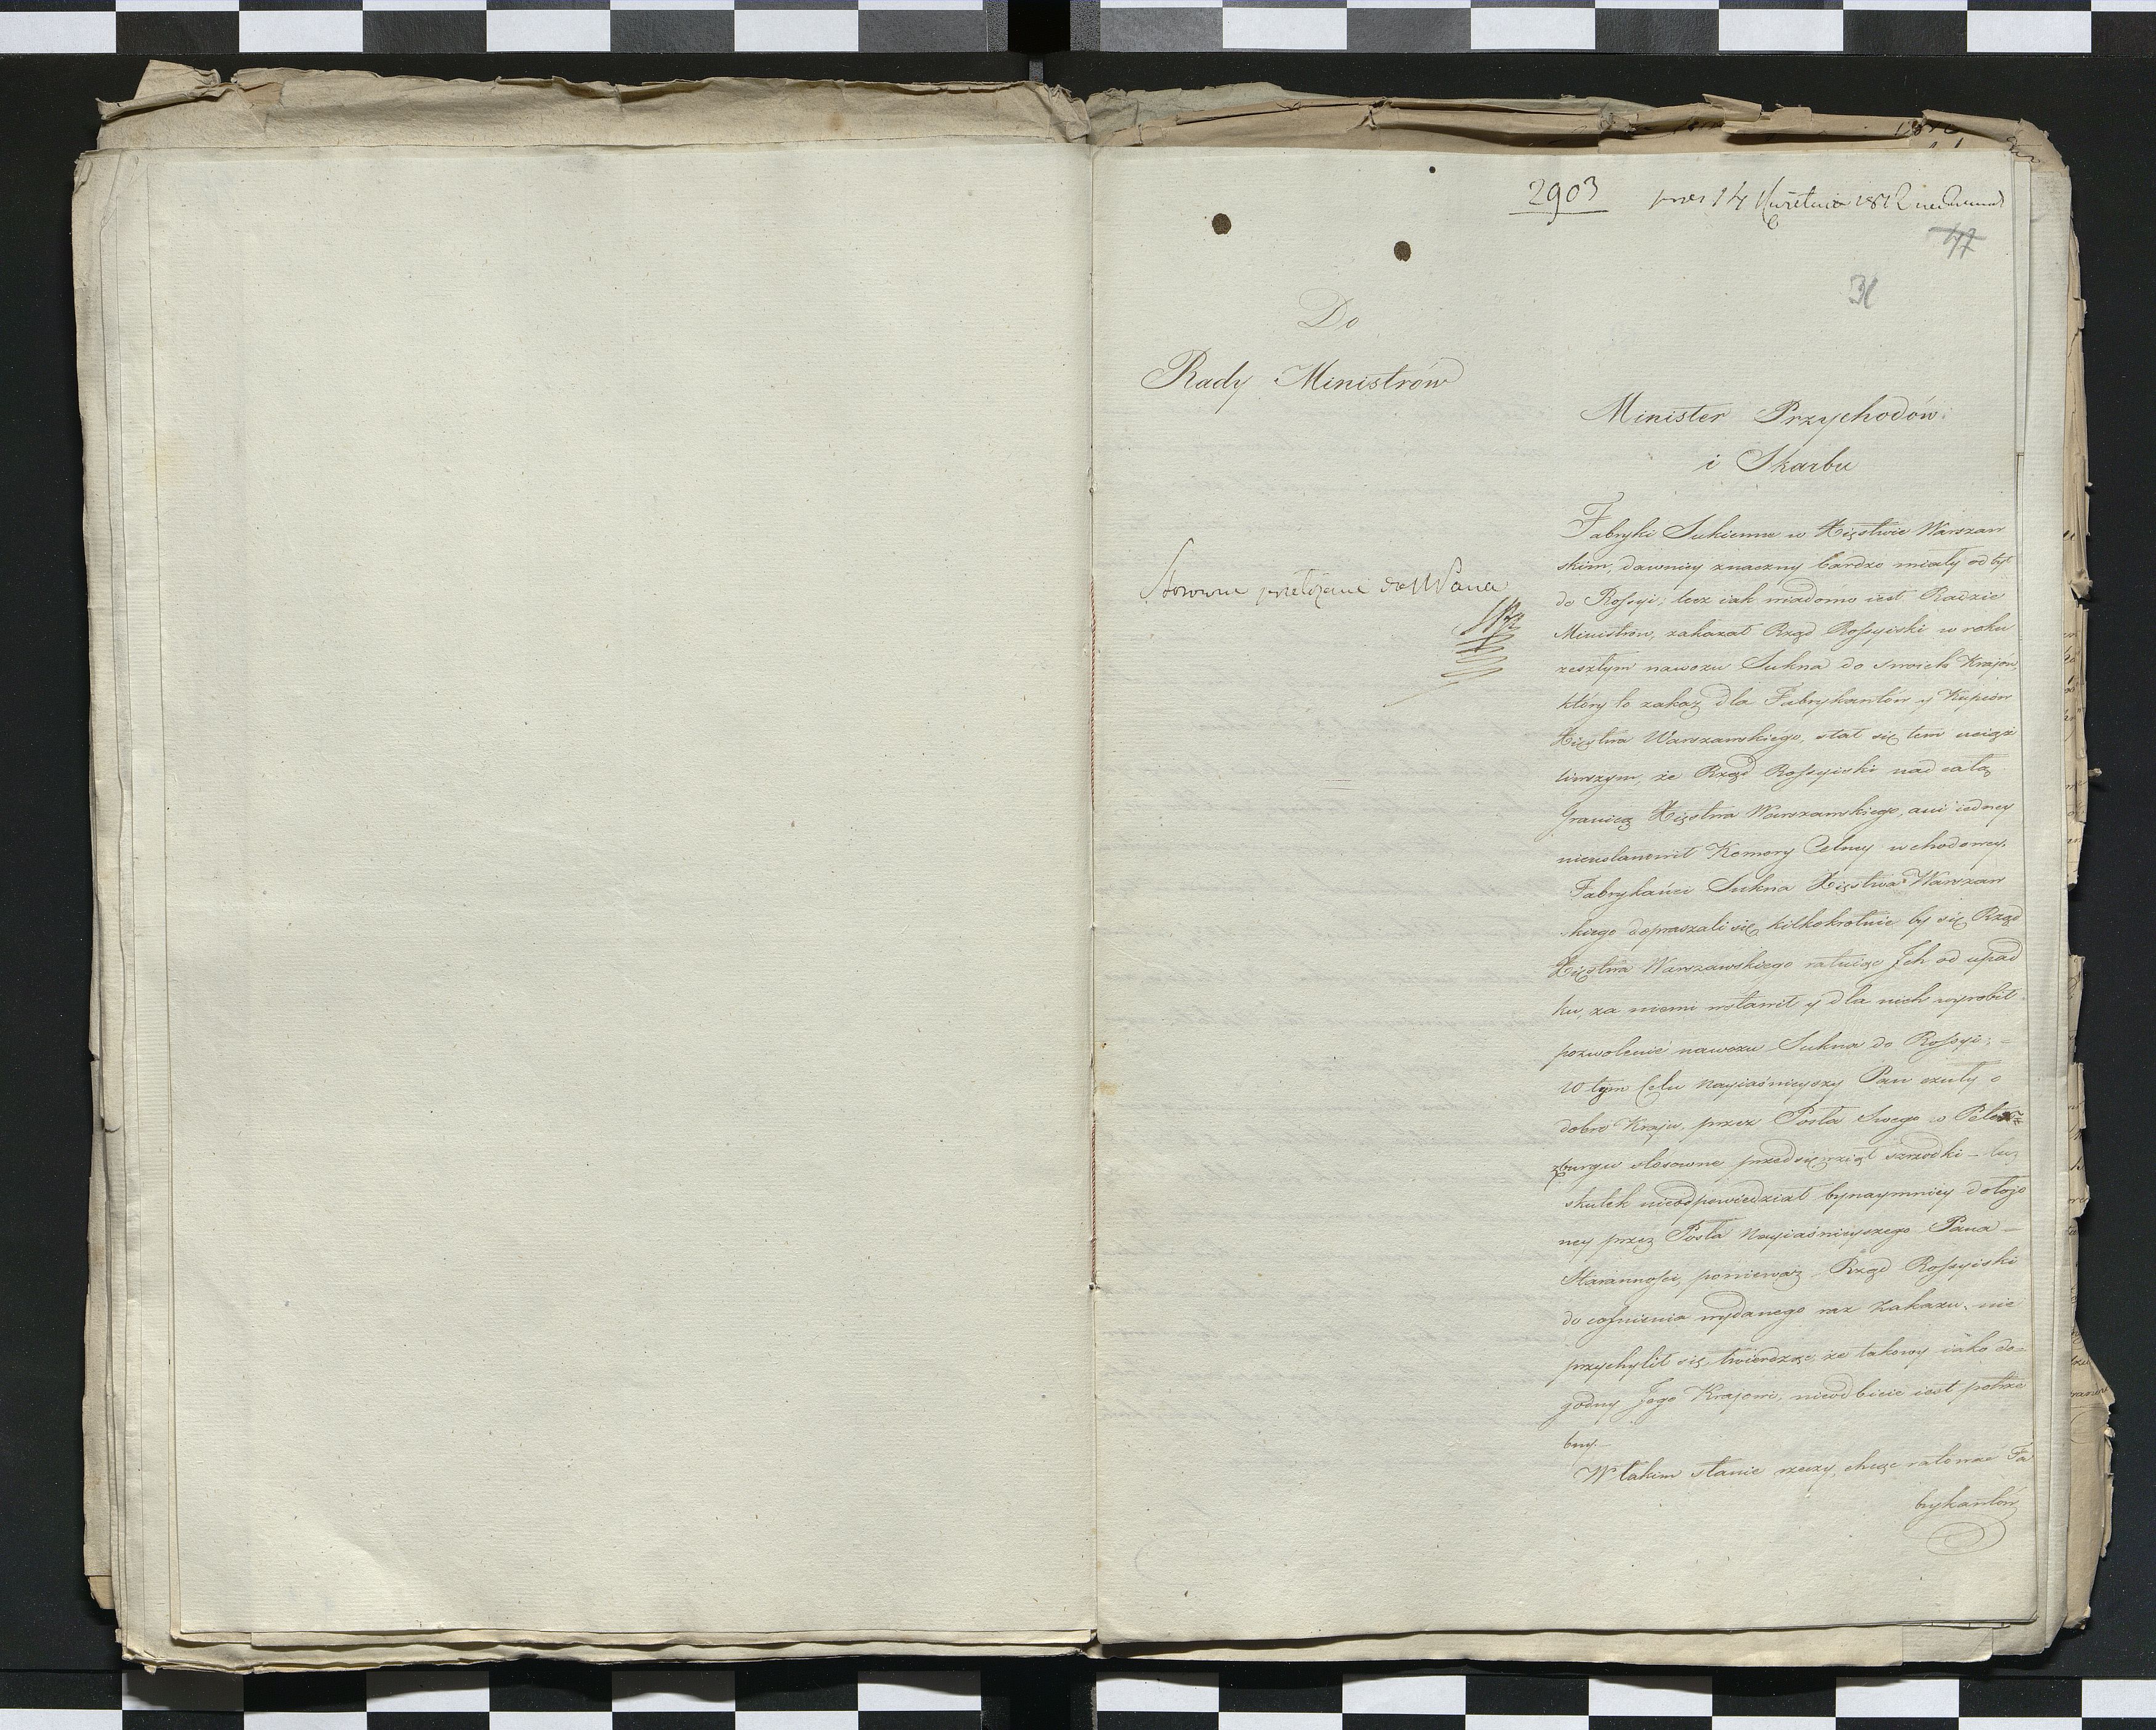 2903
14 Kwietnia 1812
47
31
Do
Rady Ministrów
Minister Przychodów
i Skarbu
Fabryki Sukienne w Xięstwie Warszaw
skim, dawniey znaczny bardzo miały odbyt
do Rossyi; lecz iak wiadomo iest Radzie
Ministrów, zakazał Rząd Rossyiski w roku
zeszłym nawozu Sukna do swoich Kraiów,
który to zakaz dla Fabrykantów y Kupców
Xięstwa Warszawskiego, stał się tem uciąż
liwszym, że Rząd Rossyiski nad całą
Granicą Xięstwa Warszawskiego, ani iedney
nieustanowił Komory Celney wchodowey.
Fabrykańci Sukna Xięstwa Warszaw
skiego dopraszali się kilkokrotnie by się Rząd
Xięstwa Warszawskiego ratuiąc Ich od upad
ku, za niemi wstawił y dla nich wyrobił
pozwolenie nawozu Sukna do Rossyi; =
W tym Celu Nayiaśnieyszy Pan czuły o
dobro Kraju, przez Posła Swego w Peters
burgu stosowne przedsięwziął szrzodki – lecz
skutek nieodpowiedział bynaymniey dołożo
ney przez Posła Nayiaśnieyszego Pana –
Staranności, ponieważ Rząd Rossyiski
do cofnienia wydanego raz Zakazu, nie
przychylił się, twierdząc, że takowy iako do=
godny Jego Krajowi, nieodbicie iest potrze
bny. –
W takim stanie rzeczy, chcąc ratować Fa
brykantów